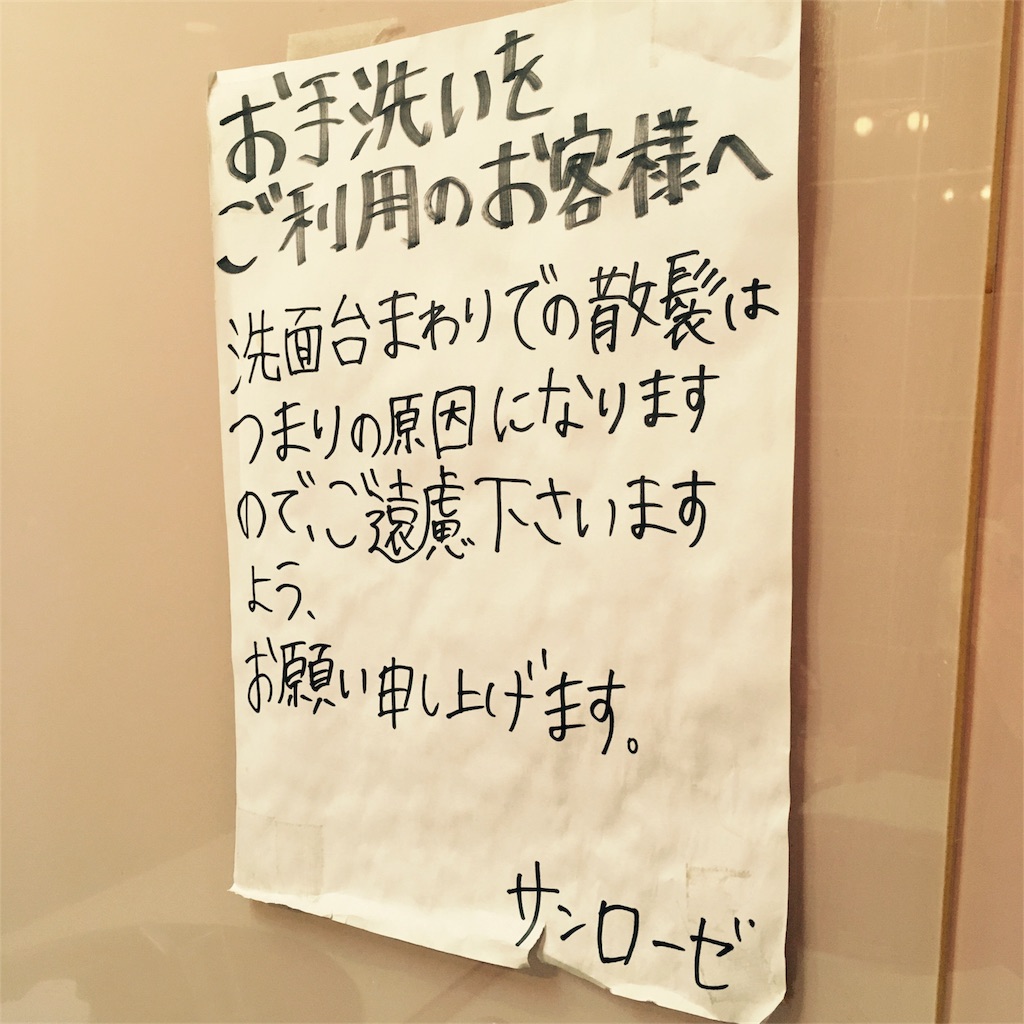 お手洗いを
ご利用のお客様へ
洗面台まわりでの散髪は
つまりの原因になります
ので、ご遠慮下さいます
よう、
お願い申し上げます。
サンローゼ